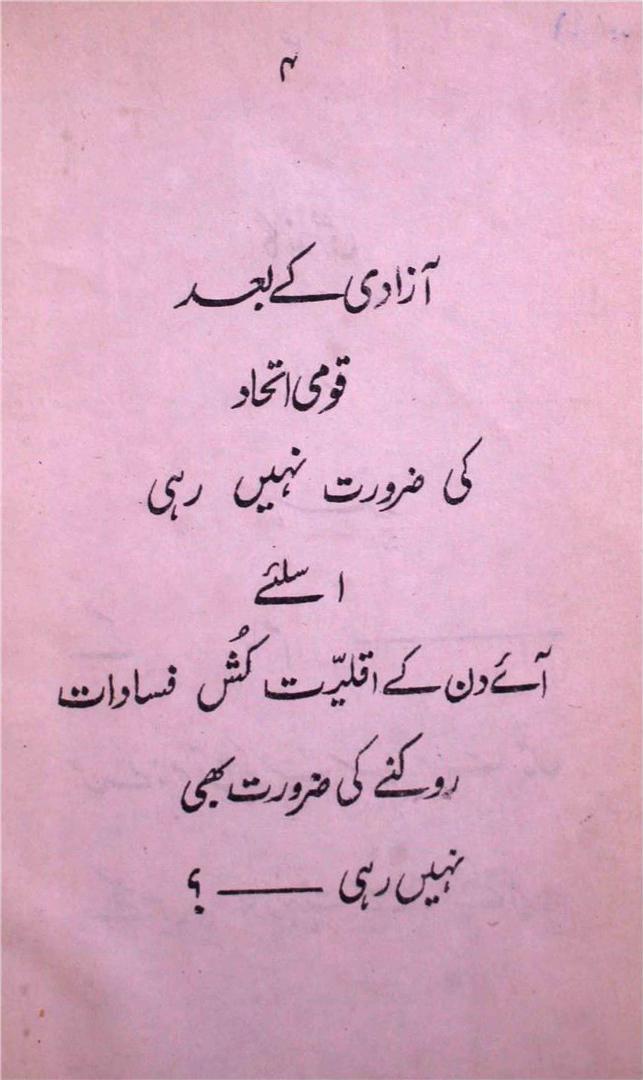 ۴
آزادی کے بعد
قومی اتحاد
کی ضرورت نہیں رہی
اسلئے
آئے دن کے اقلیّت کُش فسادات
روکنے کی ضرورت بھی
نہیں رہی ——— ؟